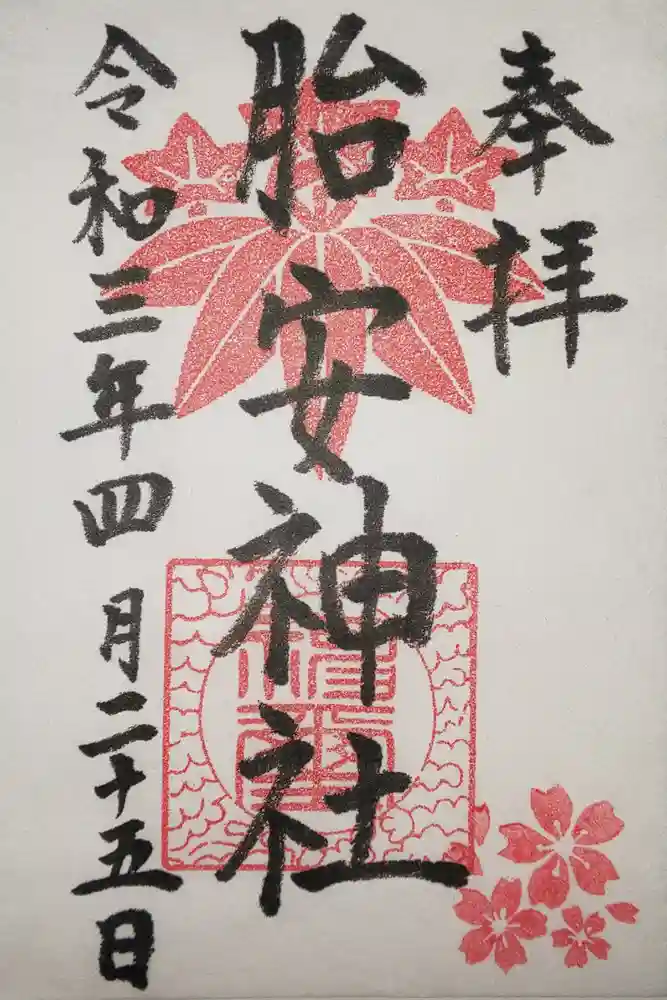 奉拝
胎安神社
令和三年四月二十五日